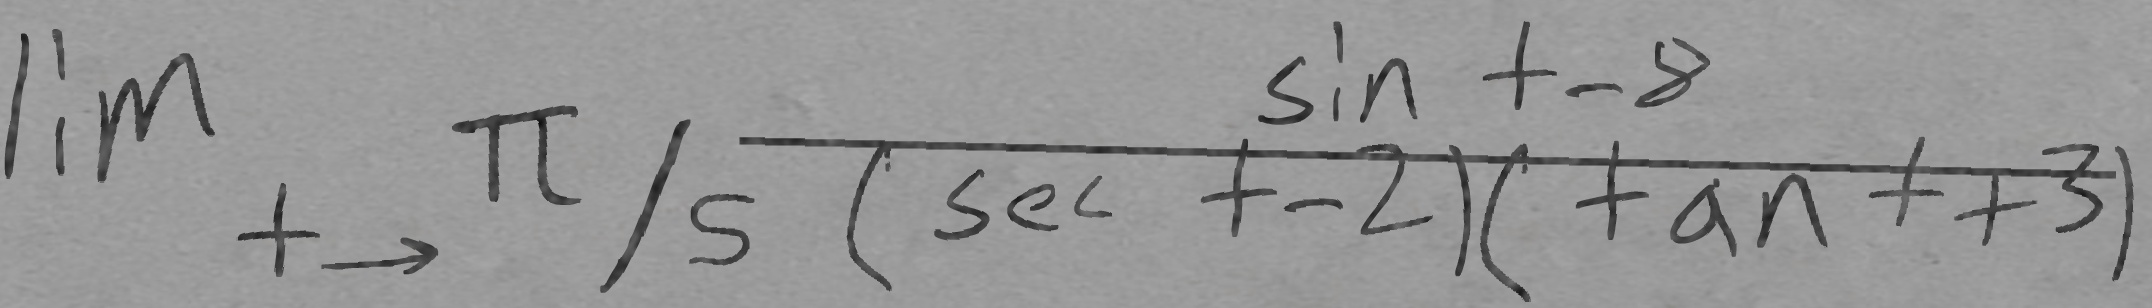 lim t→π/5 (sin t - 8)/((sec t - 2)(tan t + 3))